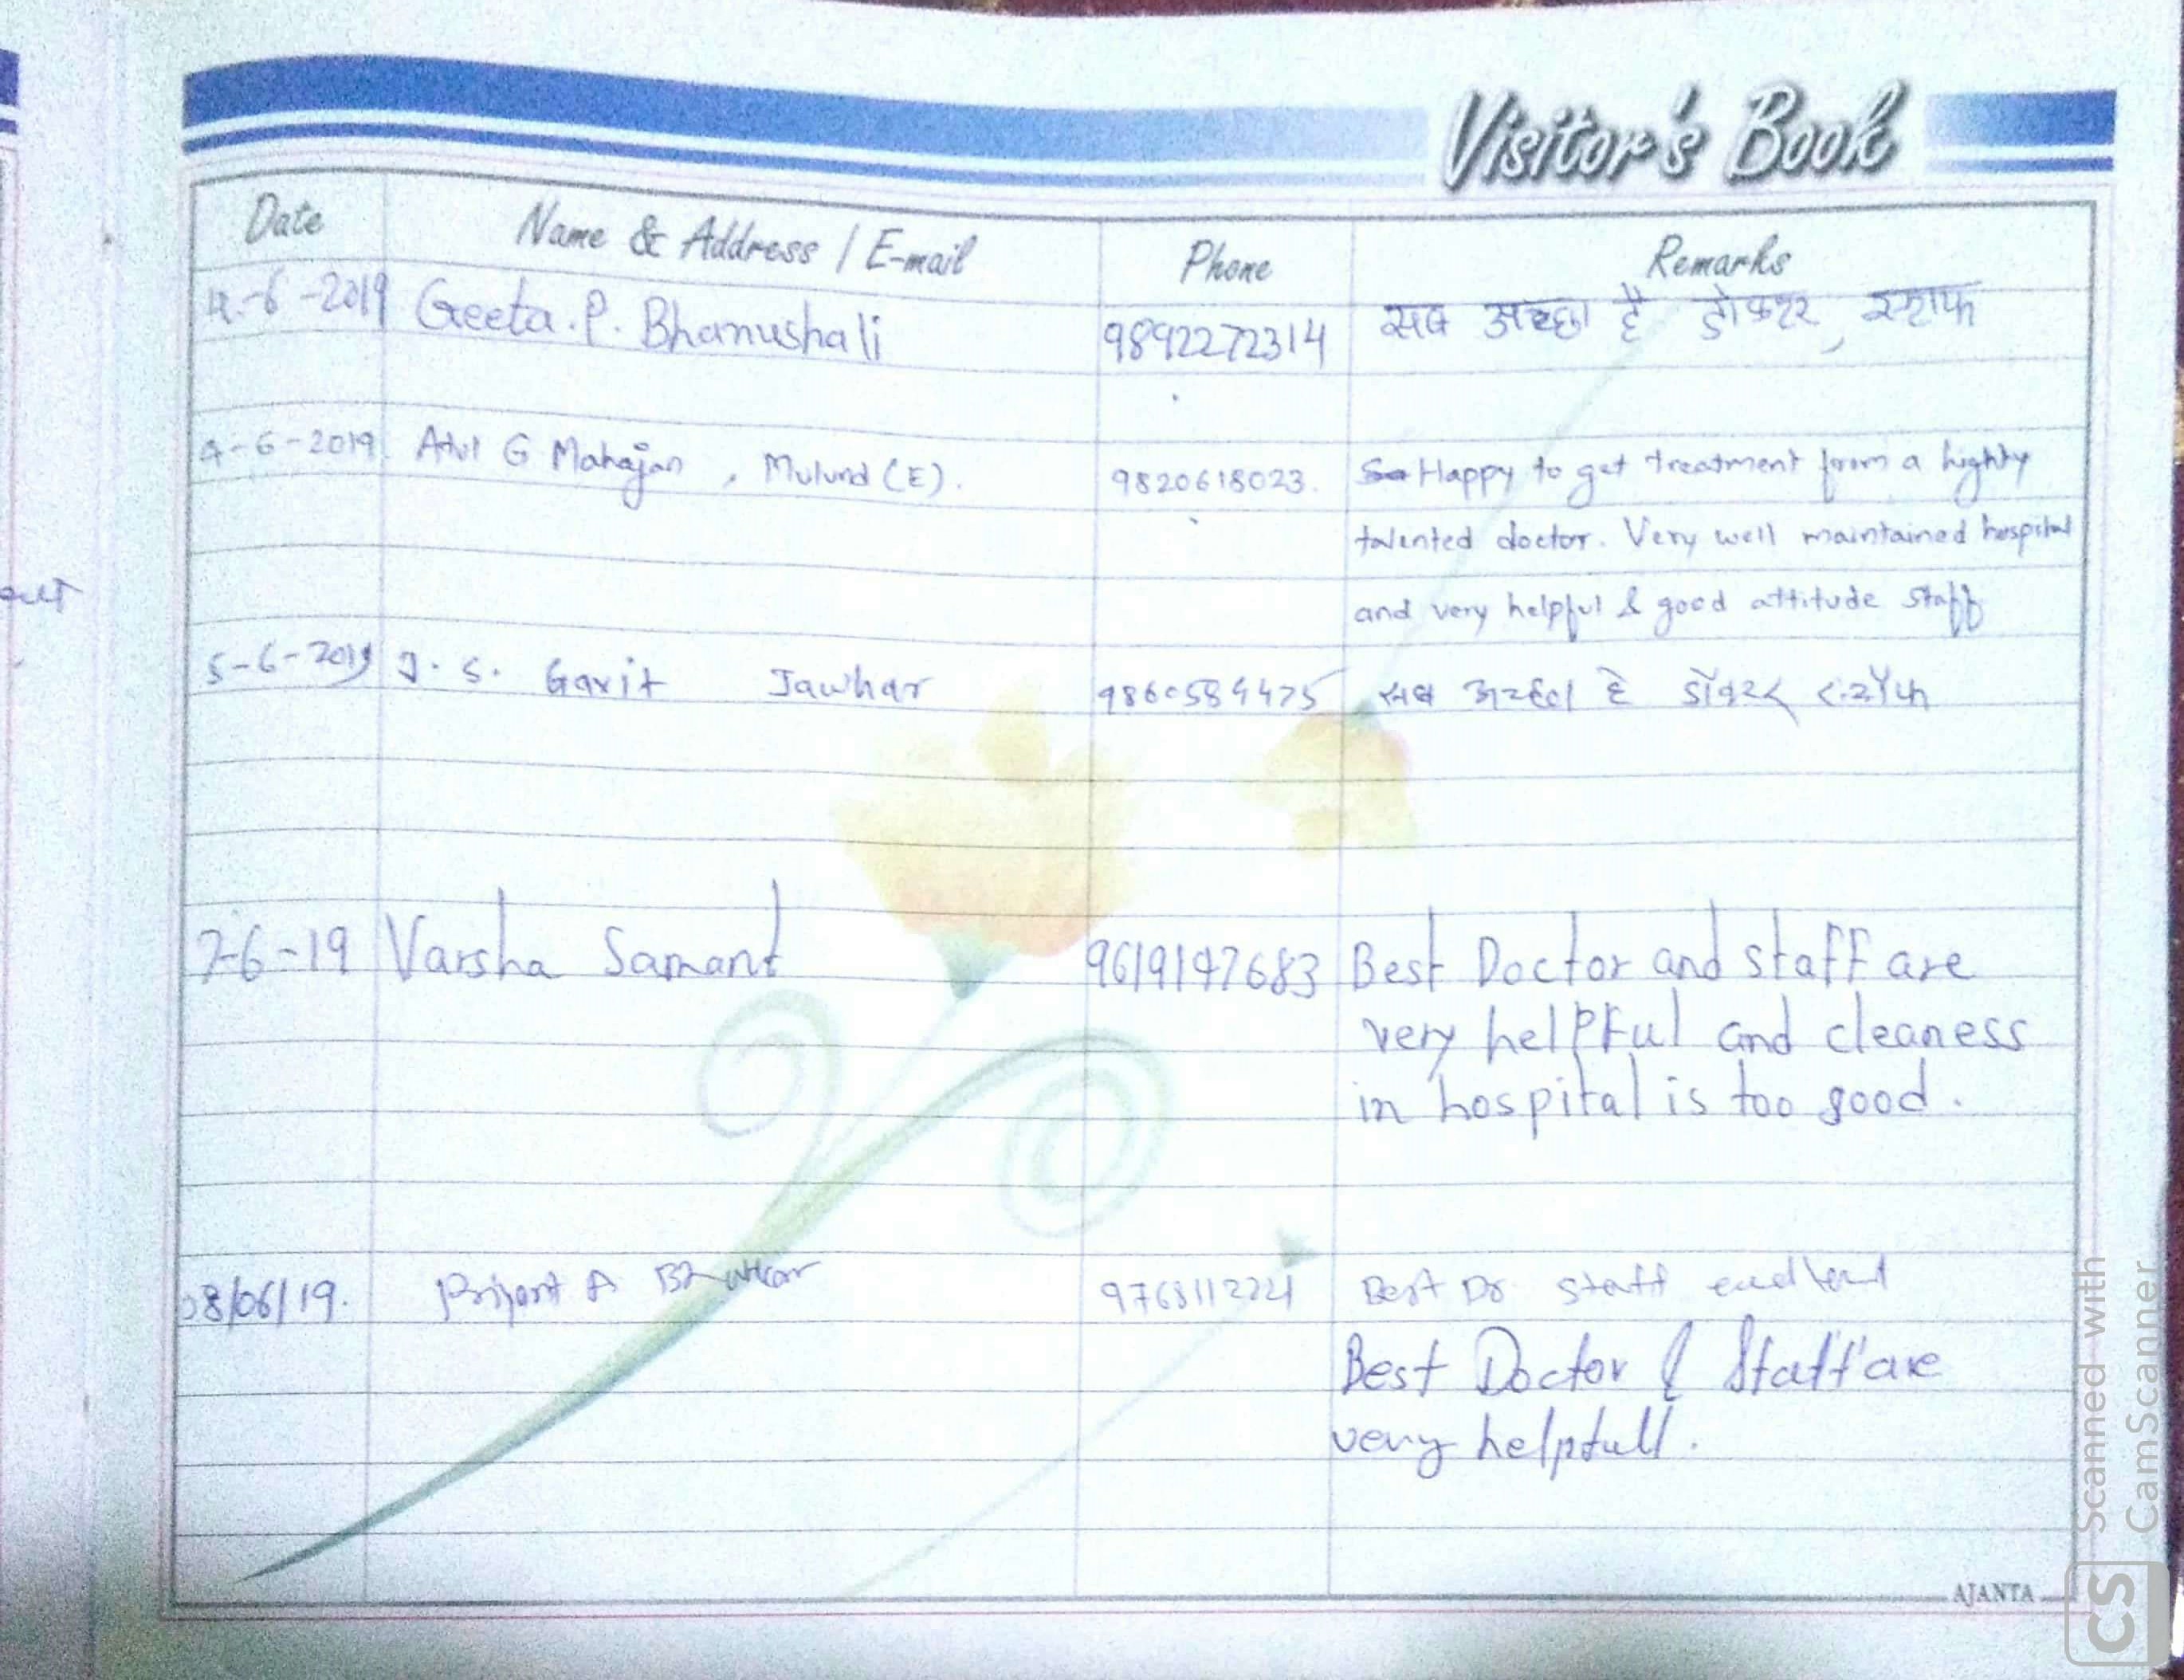 Visitor's Book
Date Name & Address / E-mail Phone Remarks
4-6-2019 Geeta.P. Bhanushali 9892272314 सब अच्छा है डोकटर, स्टाफ
4-6-2019 Atul G Mahajan, Mulund (E). 9820618023. Happy to get treatment from a highty
talented doctor. Very well maintained hospital
and very helpful & good attitude staff
5-6-2019 J. S. Gavit Jawhar 9860584475 सब अच्छा है डॉक्टर स्टॉफ
7-6-19 Varsha Samant 9619147683 Best Doctor and staff are
very helpful and cleaness
in hospital is too good.
08/06/19. A 9768112221 Best Dr staff
Best Doctor & Staff are
very helpfull.
AJANTA
Scanned with
CamScanner
CS